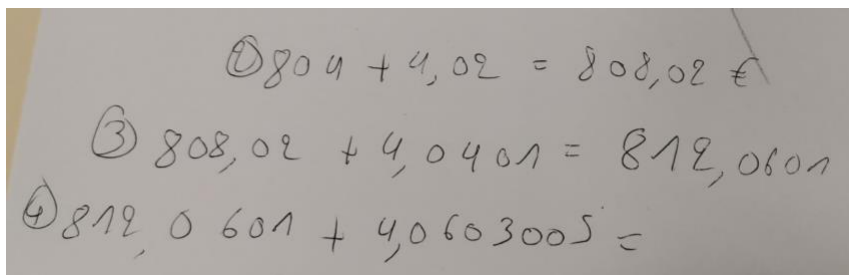 ② 804 + 4,02 = 808,02 €
③ 808,02 + 4,0401 = 812,0601
④ 812,0601 + 4,0603005 =